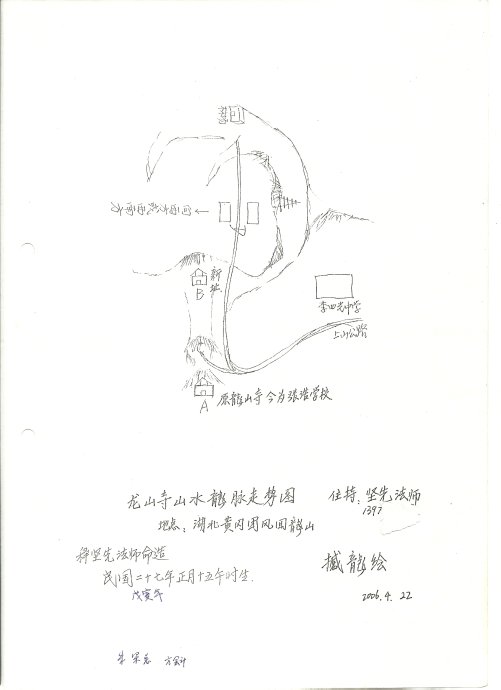 新址
B
李四光中学
上山公路
A
原龍山寺今为張浩学校
龙山寺山水龍脉走势图
住持:坚先法师
1397
地点:湖北黄冈团风回龍山
释坚先法师命造
民国二十七年正月十五午时生.
戊寅年
撼龍绘
2006.4.22